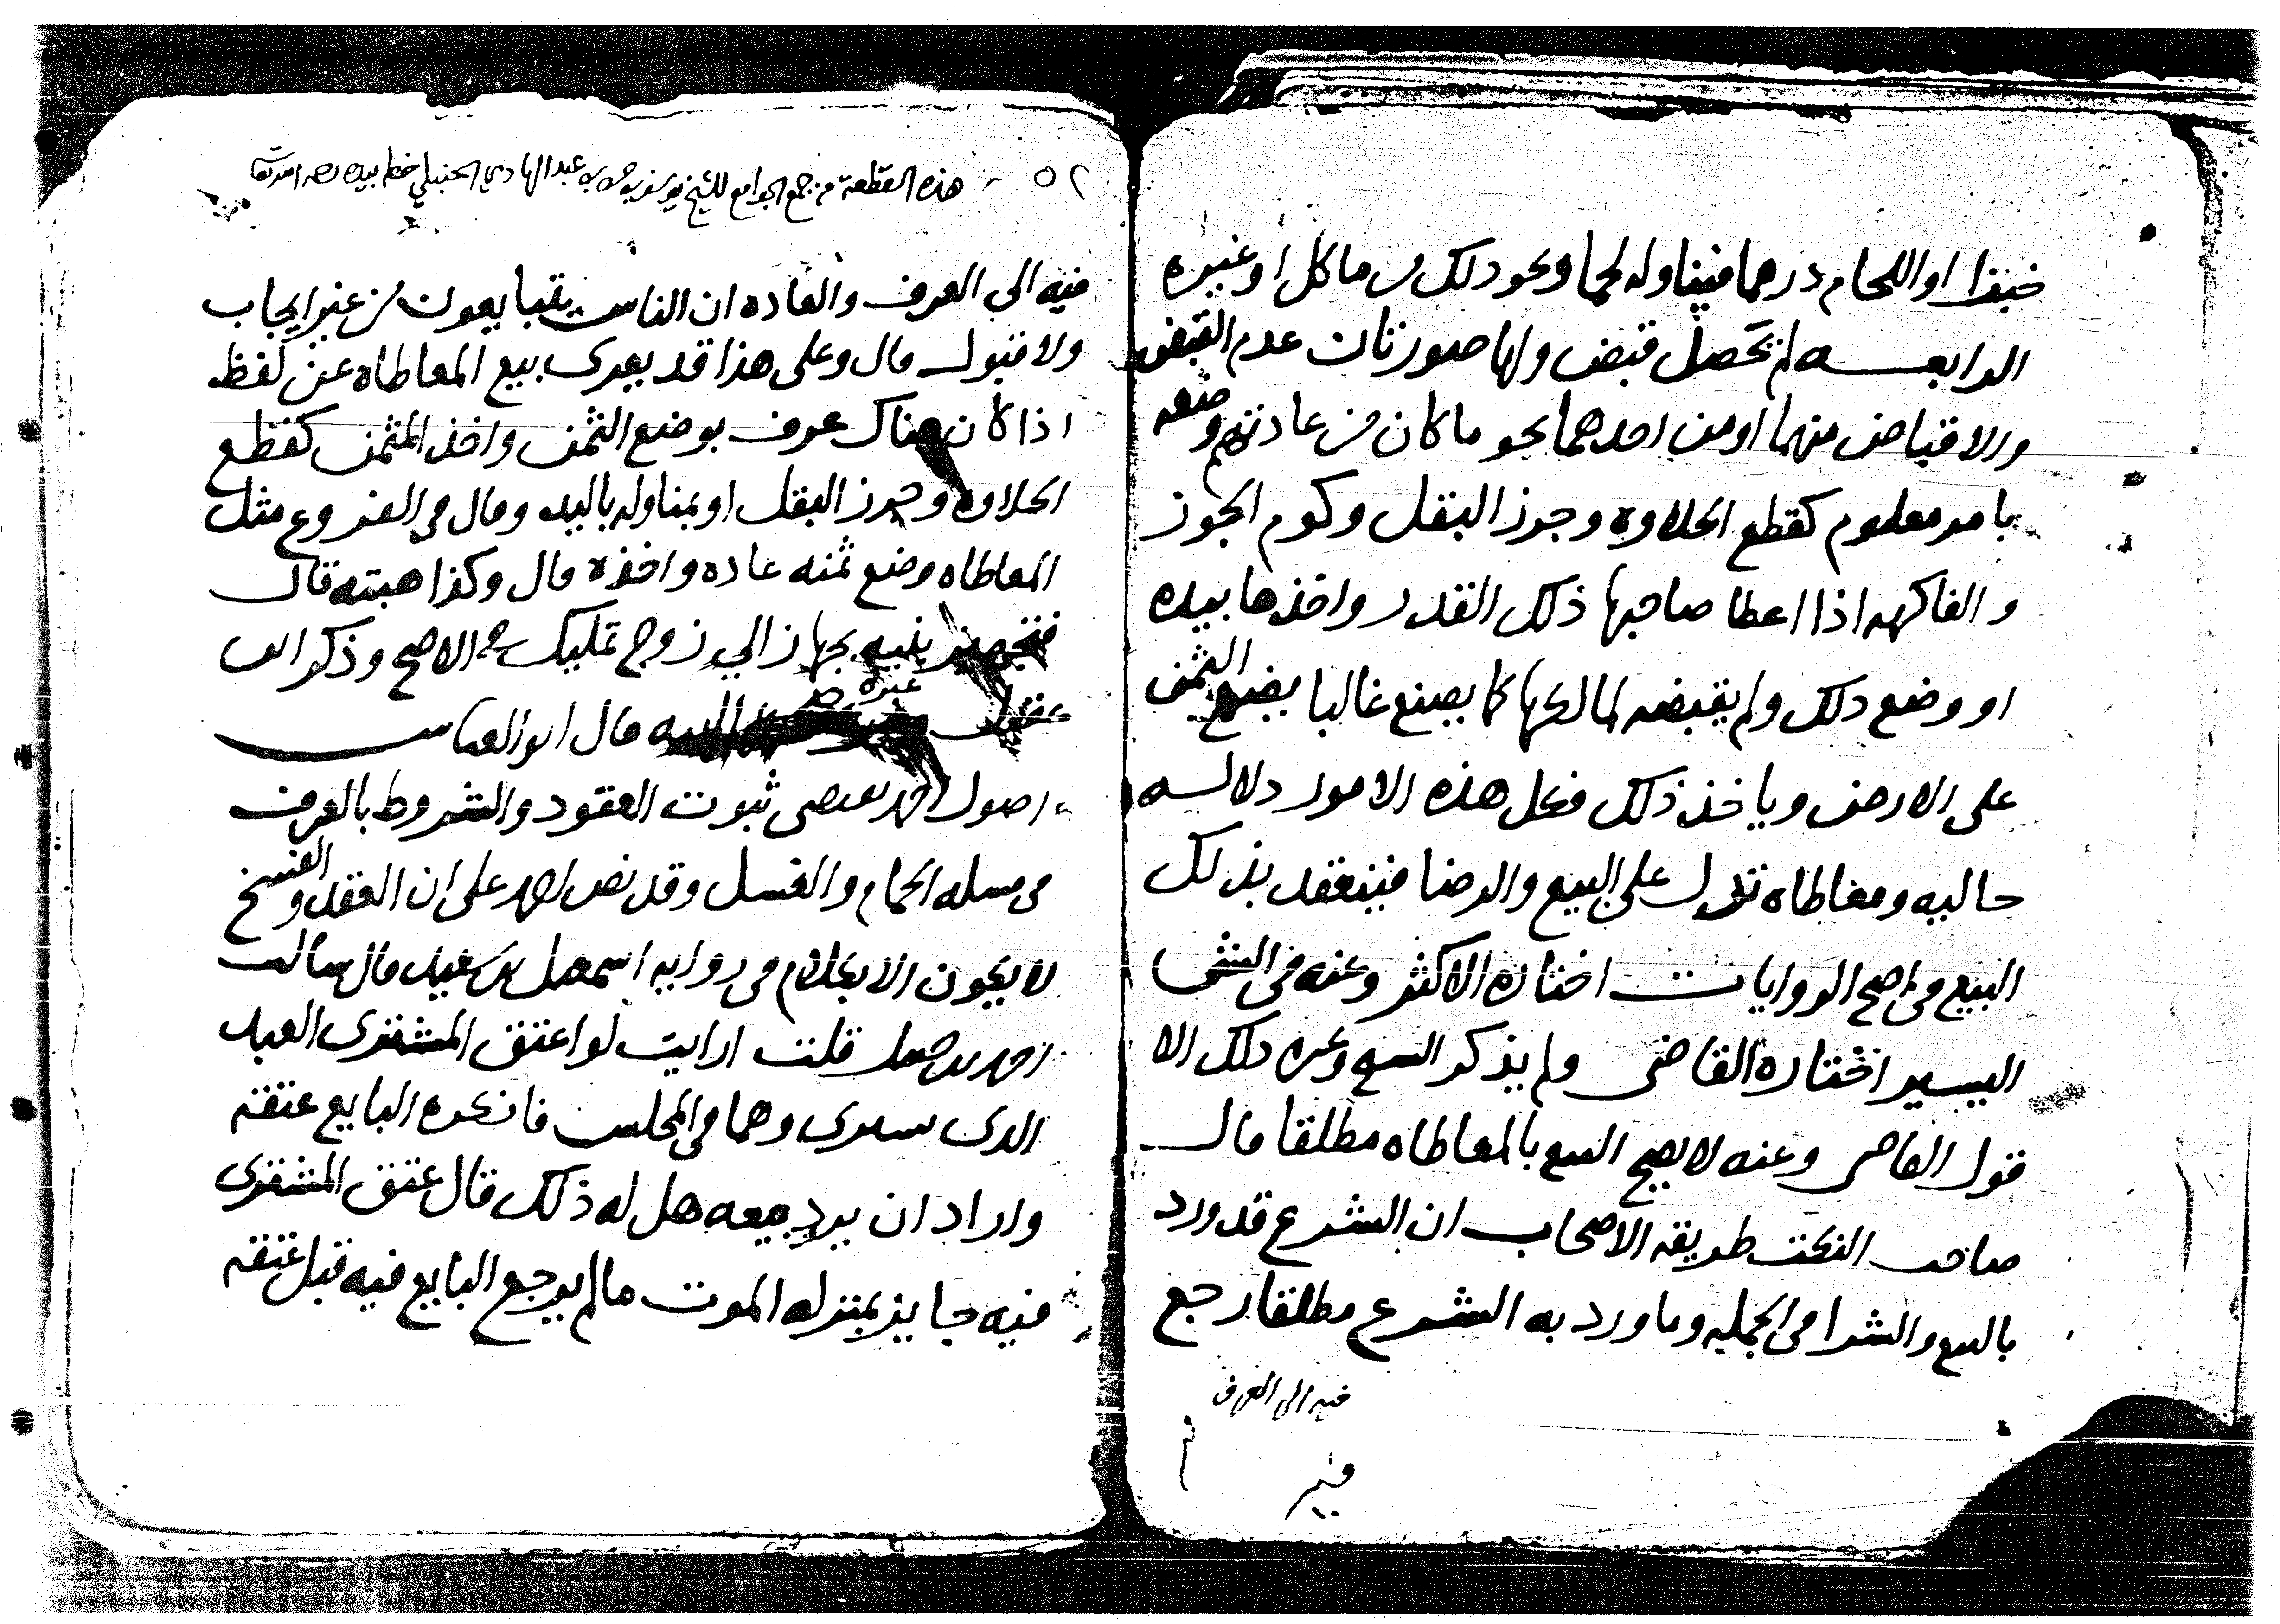 خبزا او اللحام درهما فيناوله لحما ونحو ذلك من ماكل او غيره
الرابعـــه لم تحصل قبض ولها صورتان عدم القبض
والاقتباض منهما او من احدهما نحو ما كان من عادتهم وضعه
بامر معلوم كقطع الحلاوه وجرز البقل وكوم الجوز
والفاكهه اذا اعطا صاحبها ذلك القدر واخذها بيده
او وضع ذلك ولم يقبضه لمالكها كما يصنع غالبا يضع الثمن
على الارض وياخذ ذلك فعل هذه الامور دلالــه
حاليه ومعاطاه تدل على البيع والرضا فينعقد بذلك
البيع في اصح الروايات اختاره الاكثر وعنه في الشي
اليسير اختاره القاضي ولم يذكر السح وغيره ذلك الا
قول القاضي وعنه لا يصح البيع بالمعاطاه مطلقا قال
صاحب النكت طريقه الاصحاب ان الشرع قد ورد
بالبيع والشرا في الجمله وما ورد به الشرع مطلقا رجع
فيه الى العرف
فيه
٥٢
هذه القطعة من جمع الجوامع للشيخ يوسف بن عبد الهادي الحنبلي خطها بيده
فيه الى العرف والعاده ان الناس يتبايعون من غير ايجاب
ولا قبول قال وعلى هذا قد يعرى بيع المعاطاه عن لفظ
اذا كان هناك عرف بوضع الثمن واخذ المثمن كقطع
الحلاوه وجرز البقل او بمناوله باليد وقال في الفروع مثل
المعاطاه وضع ثمنه عاده واخذه قال وكذا هبته قال
فتجهيز بنته بجهاز الي زوج تمليك في الاصح وذكر ابن
عقيل غيره قال ابو العباس
اصول احمد تقتضي ثبوت العقود والشروط بالعرف
في مسله الحمام والغسل وقد نص احمد على ان العقد والفسخ
لا يكون الا بكلام في روايه اسمعيل بن سعيد قال سالت
احمد بن حنبل قلت ارايت لو اعتق المشترى العبد
الدى سرى وهما في المجلس فانكره البايع عتقه
واراد ان يرد بيعه هل له ذلك قال عتق المشترى
فيه جايز بمنزله الموت ما لم يرجع البايع فيه قبل عتقه